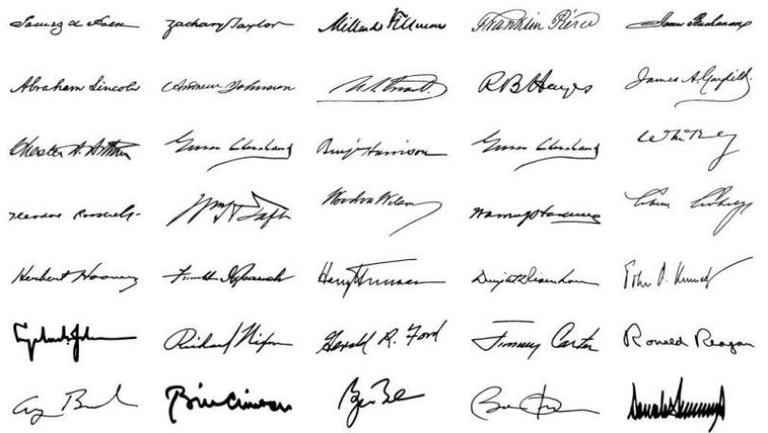 Zachary Taylor Millard Fillmore Franklin Pierce James Buchanan
Abraham Lincoln Andrew Johnson U.S. Grant R B Hayes James A. Garfield
Chester A. Arthur Grover Cleveland Benj Harrison Grover Cleveland
Theodore Roosevelt Wm H Taft Woodrow Wilson Warren G Harding Calvin Coolidge
Herbert Hoover Franklin D Roosevelt Harry Truman Dwight D Eisenhower John F. Kennedy
Lyndon B. Johnson Richard Nixon Gerald R. Ford Jimmy Carter Ronald Reagan
Bill Clinton Donald Trump